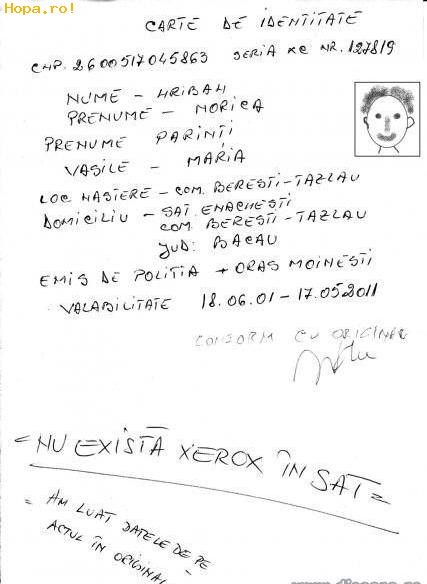 Hopa.ro!
CARTE DE IDENTITATE
CNP. 2600517045863 SERIA XC NR. 127819
NUME - HRIBAN
PRENUME - NORICA
PRENUME PARINȚI
VASILE - MARIA
LOC NASTERE - COM. BERESTI-TAZLAU
DOMICILIU - SAT. ENACHESTI
COM. BERESTI-TAZLAU
JUD: BACAU
EMIS DE POLITIA + ORAS MOINESTI
VALABILITATE 18.06.01 - 17.05.2011
CONFORM CU ORIGINAL
= NU EXISTĂ XEROX ÎN SAT =
= AM LUAT DATELE DE PE
ACTUL ÎN ORIGINAL